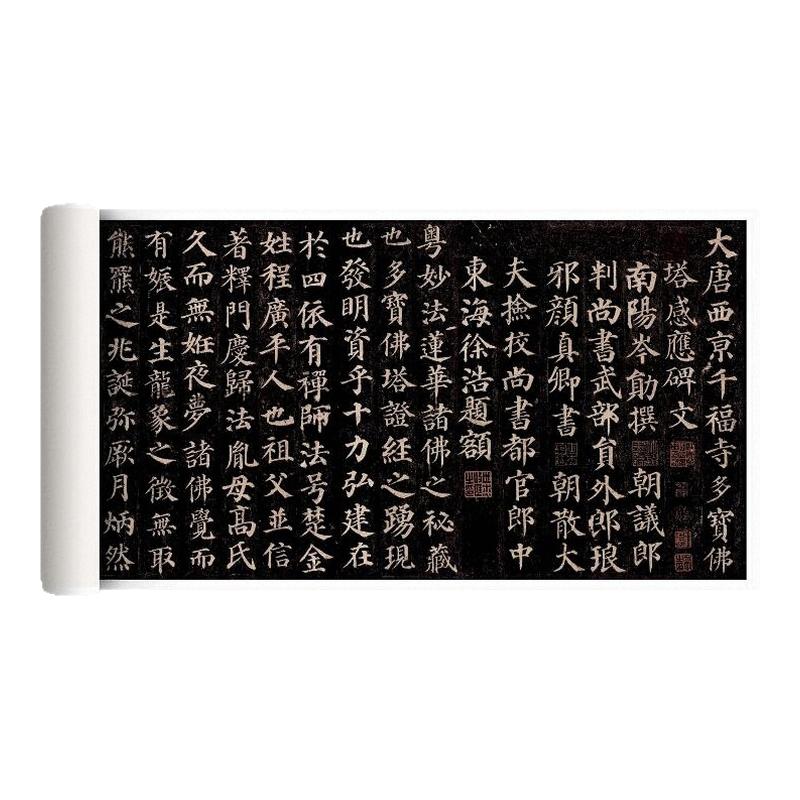 大唐西京千福寺多寶佛
塔感應碑文
南陽岑勛撰 朝議郎
判尚書武部員外郎琅
邪顏真卿書 朝散大
夫撿挍尚書都官郎中
東海徐浩題額
粵妙法蓮華諸佛之祕藏
也多寶佛塔證經之踴現
也發明資乎十力弘建在
於四依有禪師法号楚金
姓程廣平人也祖父並信
著釋門慶歸法胤母高氏
久而無姙夜夢諸佛覺而
有娠是生龍象之徵無取
熊羆之兆誕弥厥月炳然